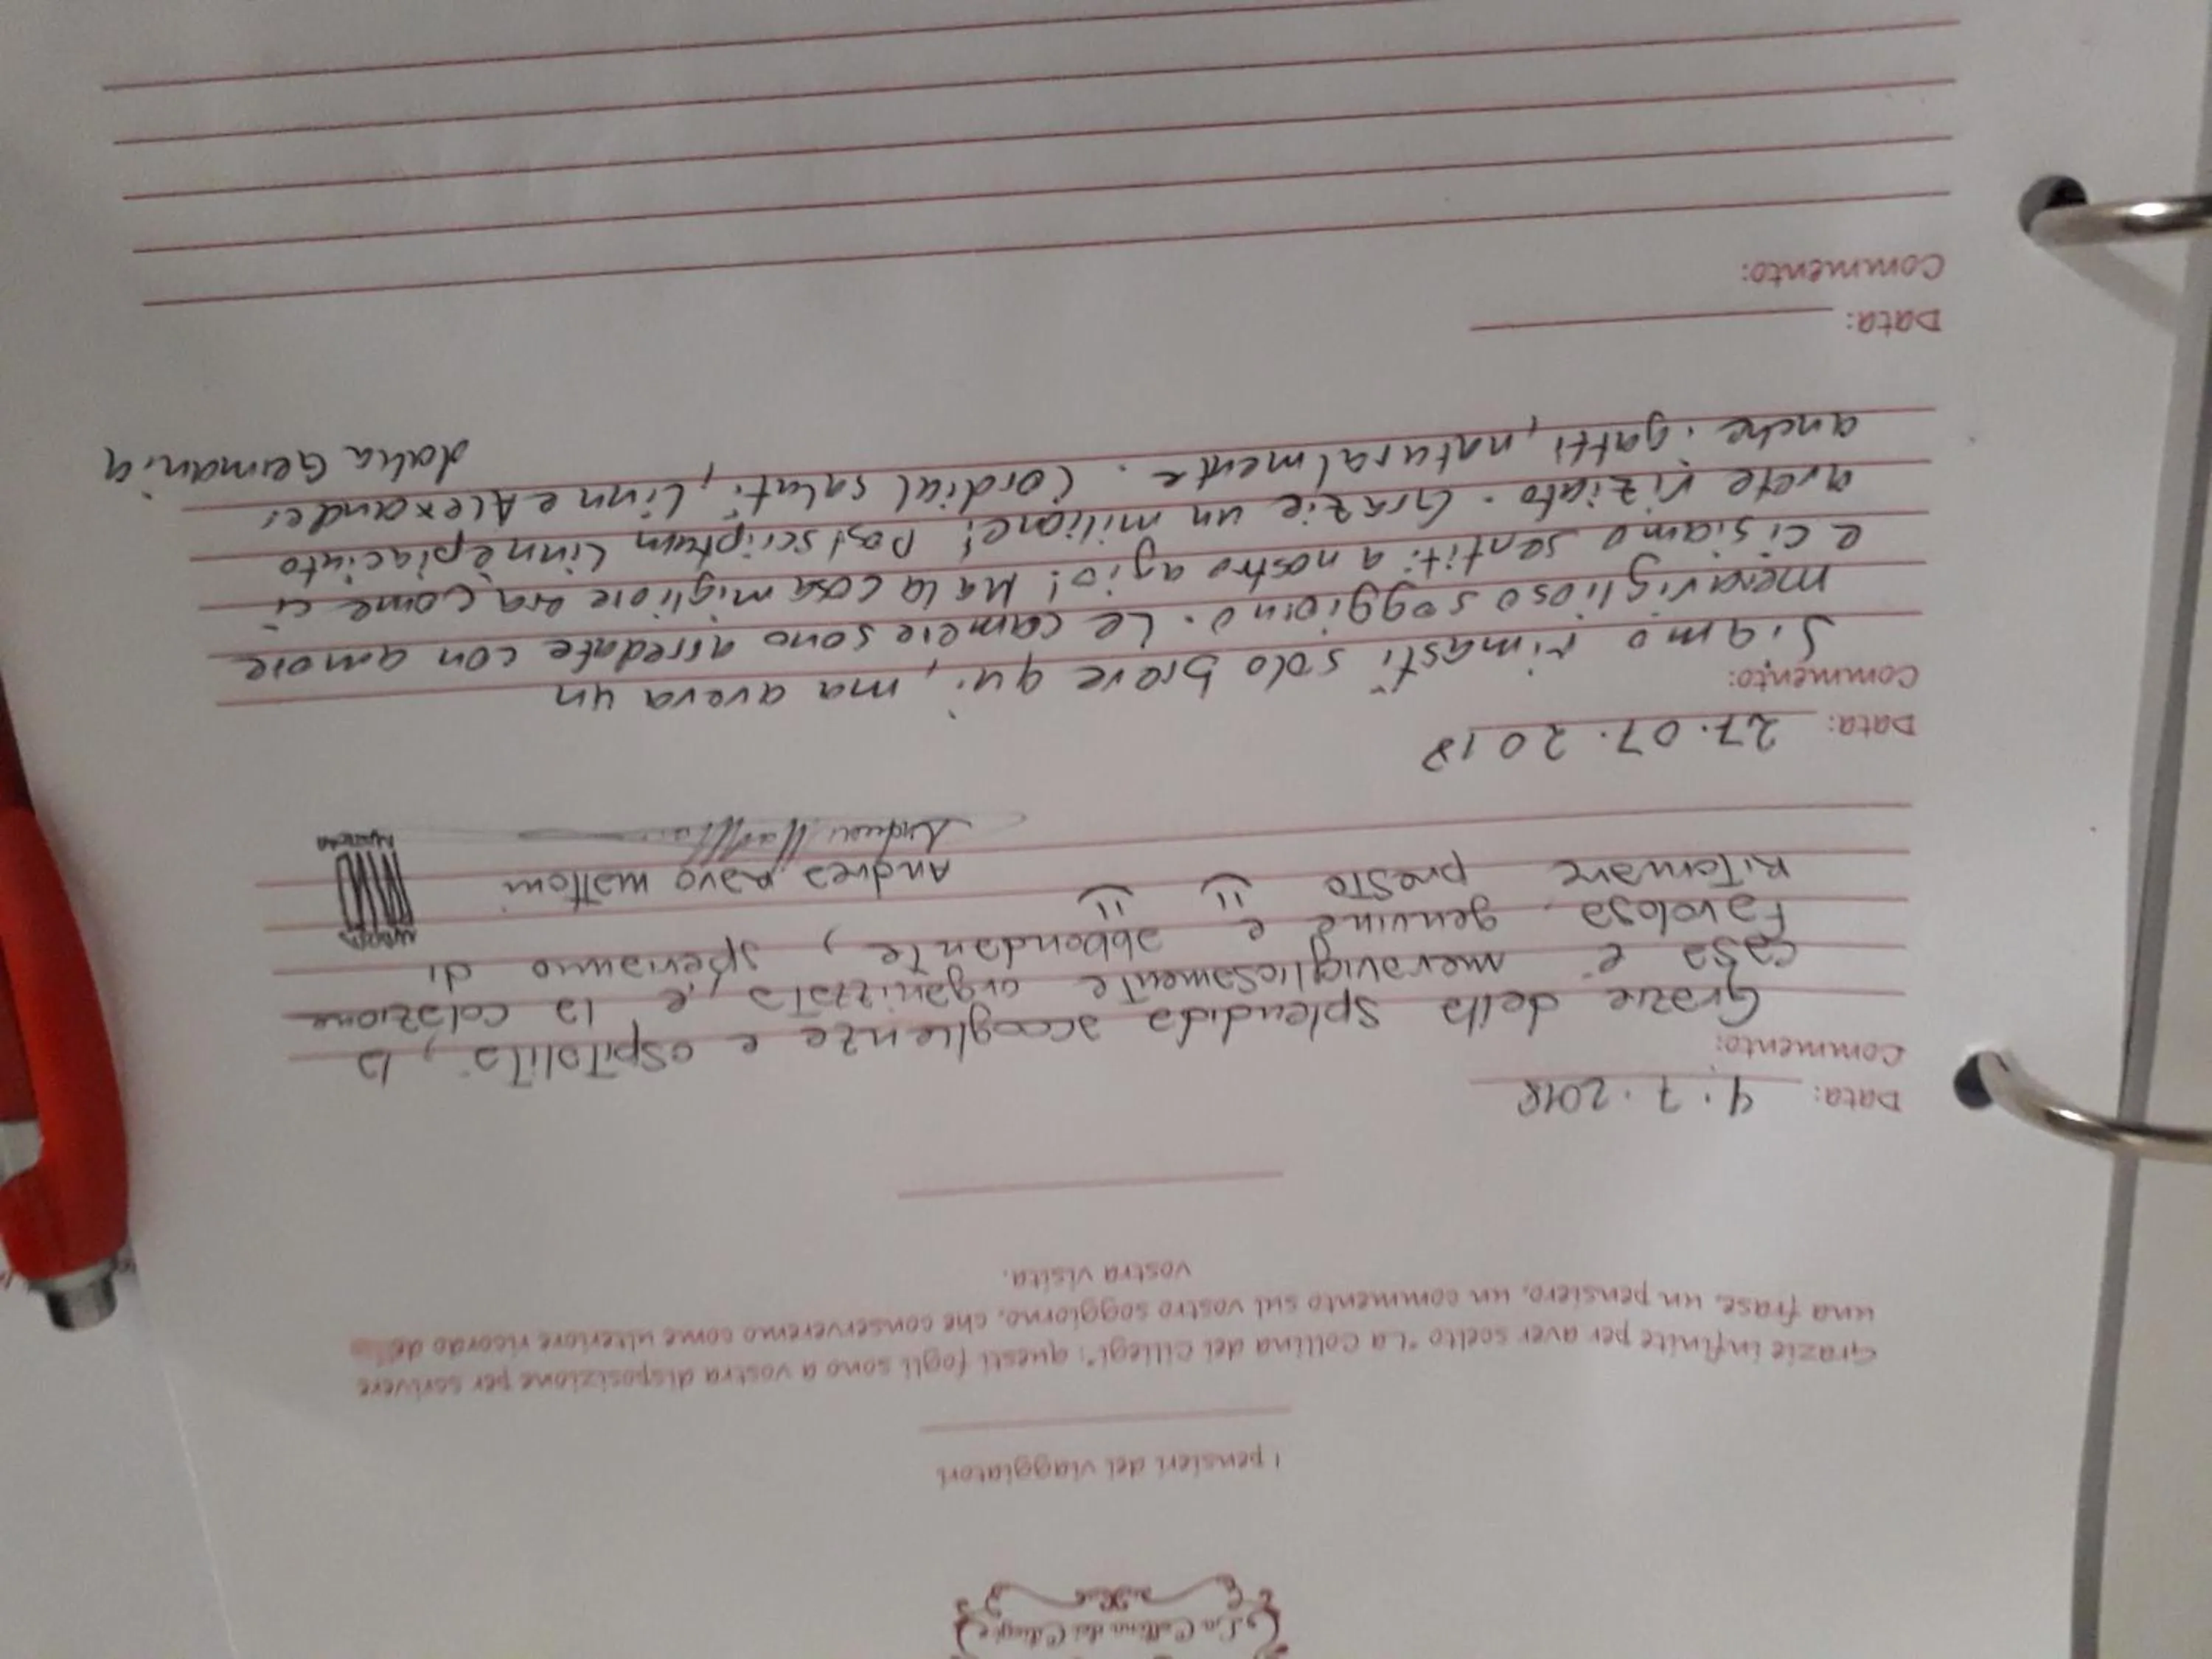 La Collina dei Ciliegi
I pensieri dei viaggiatori
Grazie infinite per aver scelto "La Collina dei Ciliegi": questi fogli sono a vostra disposizione per scrivere
una frase, un pensiero, un commento sul vostro soggiorno, che conserveremo come ulteriore ricordo della
vostra visita.
Data: 4.7.2018
Commento:
Grazie della splendida accoglienza e ospitalità, la
casa è meravigliosamente organizzata, e la colazione
favolosa, genuina e abbondante, speriamo di
ritornare presto
Andrea ravo mattoni
Data: 27.07.2018
Commento:
Siamo rimasti solo breve qui, ma aveva un
meraviglioso soggiorno. Le camere sono arredate con amore
e ci siamo sentiti a nostro agio! Ma la cosa migliore era come ci
avete viziato. Grazie un milione! Postscriptum Linn è piaciuto
anche i gatti, naturalmente. Cordial saluti, Linn e Alexander
dalla Germania
Data:
Commento: